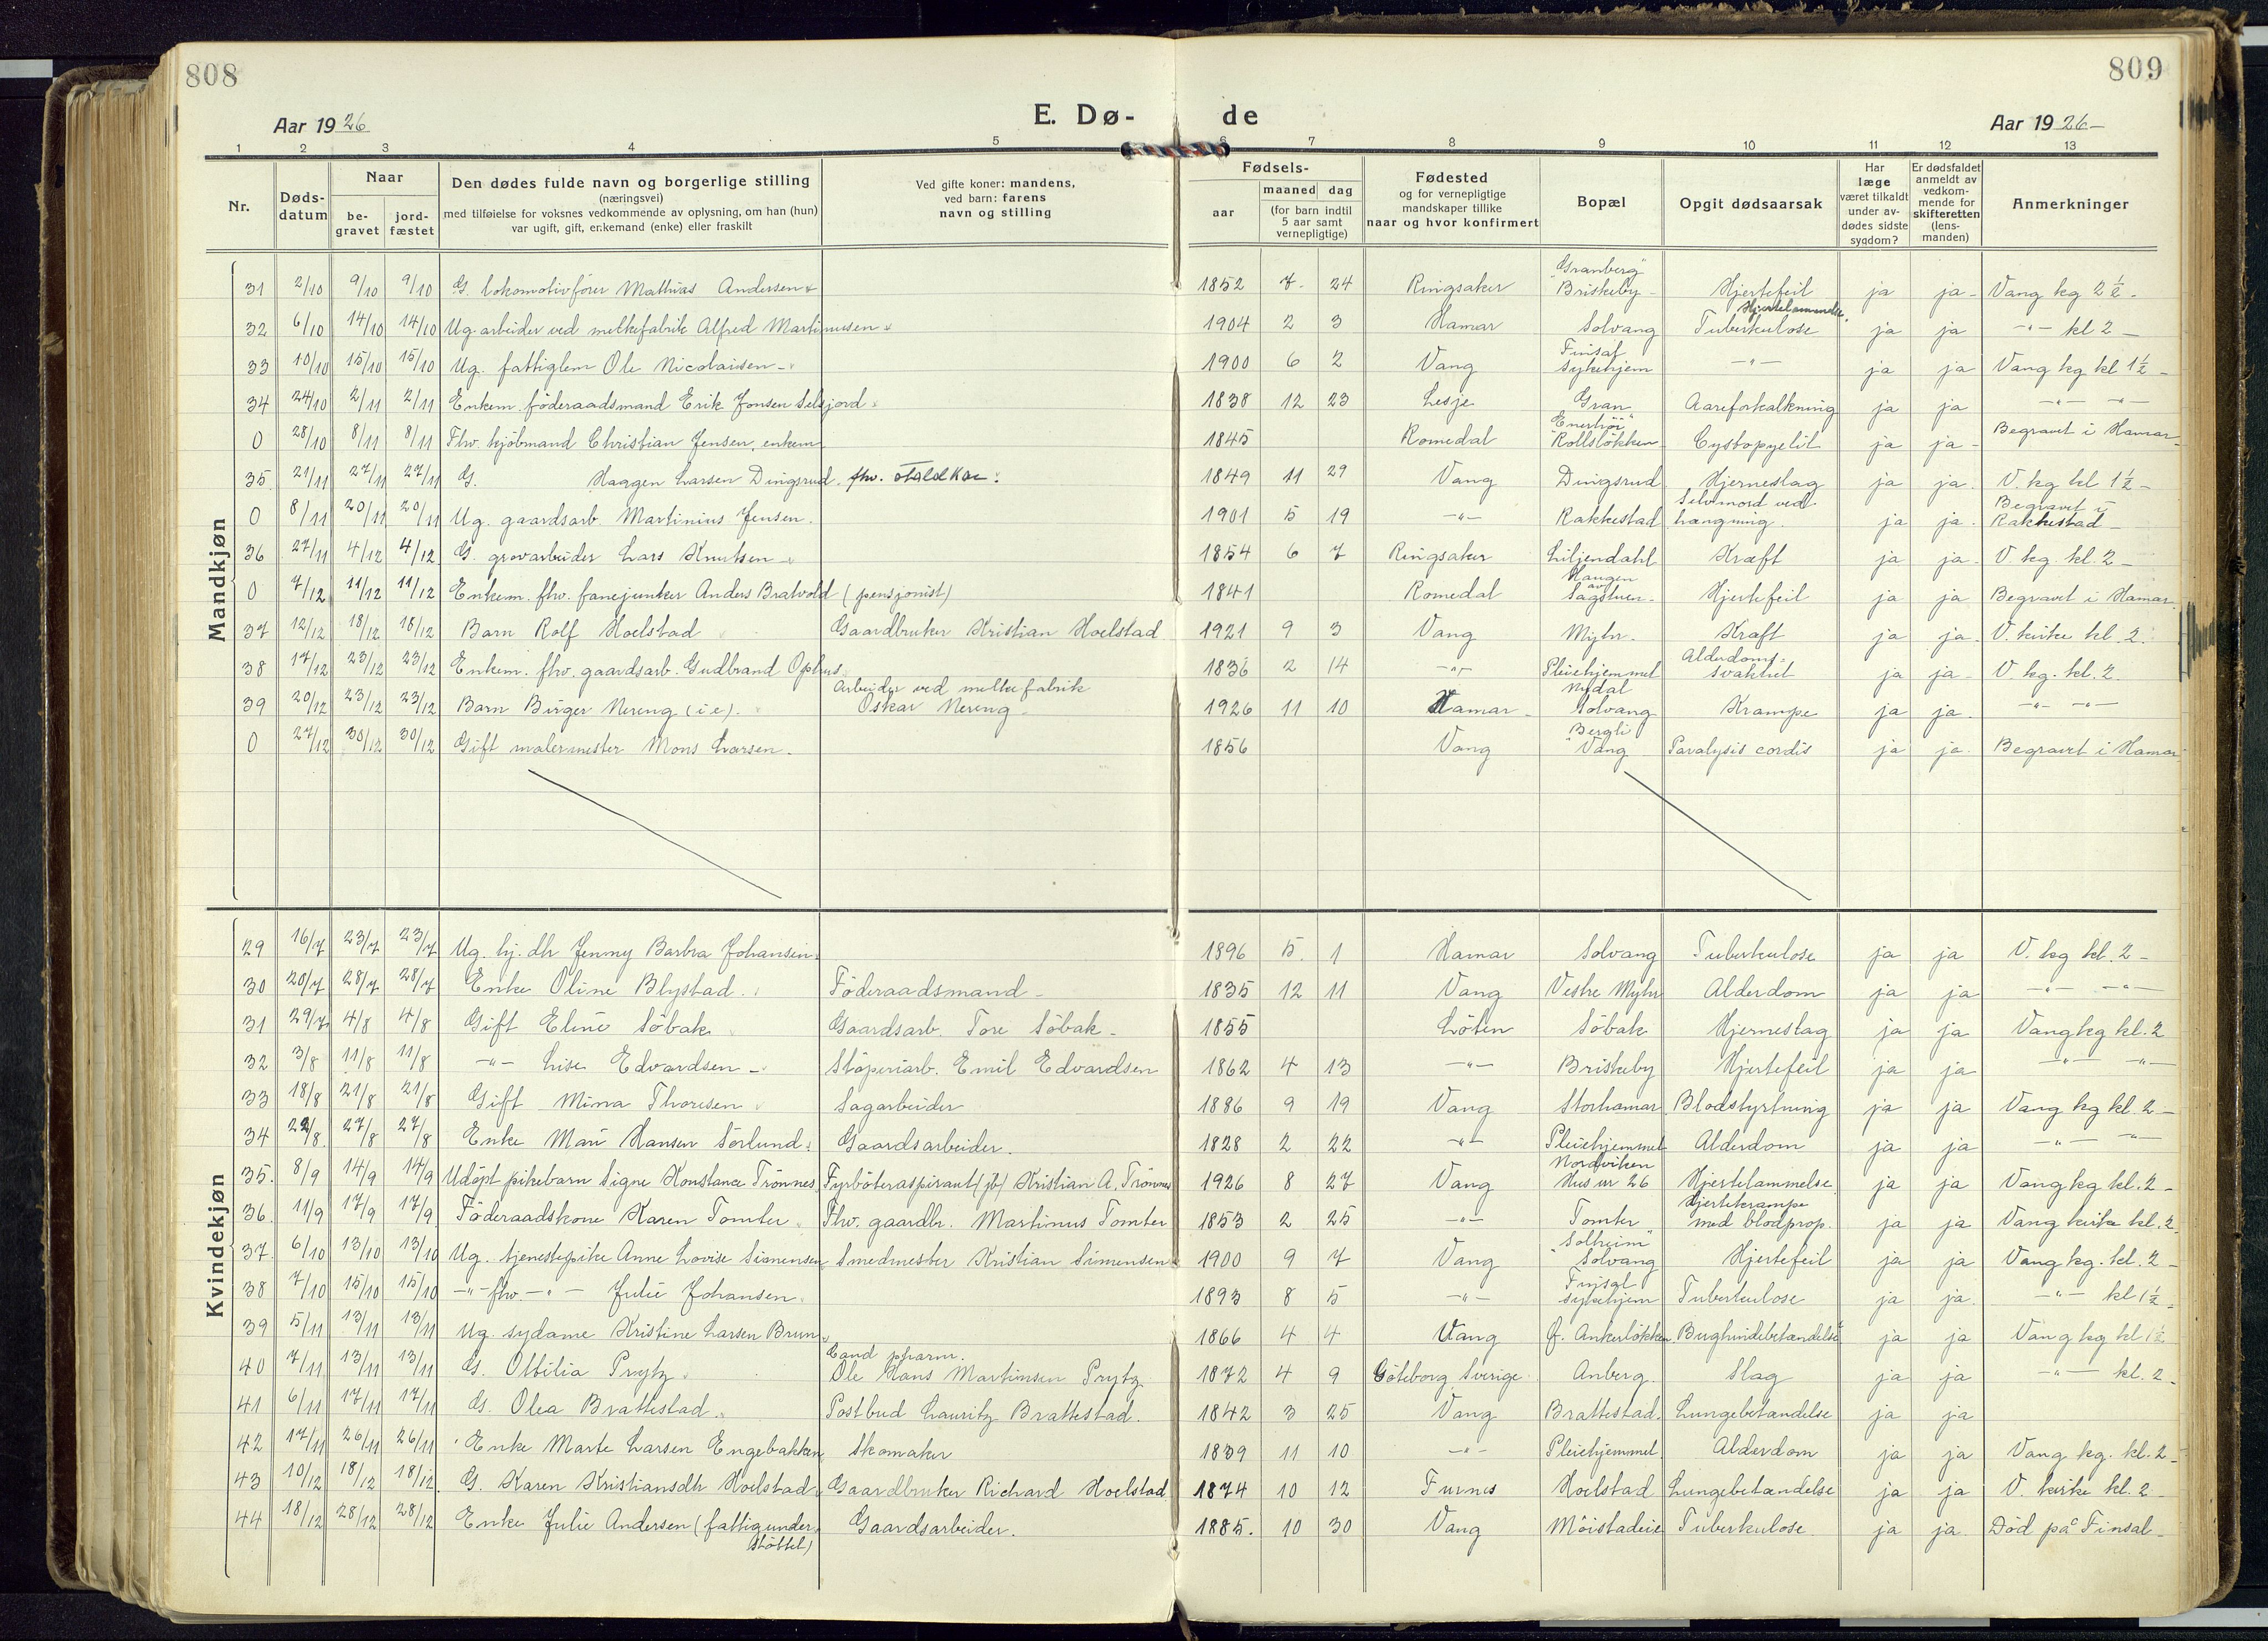 808
809
Aar 1926
E. Dø-
de
Aar 1926-
1 2 3 4 5 6 7 8 9 10 11 12 13
Nr.
Døds-datum
Naar
be-gravet
jord-fæstet
Den dødes fulde navn og borgerlige stilling
(næringsvei)
med tilføielse for voksnes vedkommende av oplysning, om han (hun)
var ugift, gift, enkemand (enke) eller fraskilt
Ved gifte koner: mandens,
ved barn: farens
navn og stilling
Fødsels-
aar
maaned dag
(for barn indtil
5 aar samt
vernepligtige)
Fødested
og for vernepligtige
mandskaper tillike
naar og hvor konfirmert
Bopæl
Opgit dødsaarsak
Har
læge
været tilkaldt
under av-
dødes sidste
sygdom?
Er dødsfaldet
anmeldt av
vedkom-
mende for
skifteretten
(lens-
manden)
Anmerkninger
Mandkjøn
31 2/10 9/10 9/10 G. lokomotivfører Mathias Andersen 1852 7 24 Ringsaker "Granberg" Briskeby Hjertefeil ja ja Vang kg 2 ½
32 6/10 14/10 14/10 Ug. arbeider ved melkefabrik Alfred Martinusen 1904 2 3 Hamar Solvang Tuberkulose ja ja -"- kl 2
33 10/10 15/10 15/10 Ug. fattiglem Ole Nicolaisen 1900 6 2 Vang Finsal sykehjem -"- ja ja Vang kg kl 1½
34 24/10 2/11 2/11 Enkem. föderaadsmand Erik Jonsen Selsjord 1838 12 23 Lesje Gran Aareforkalkning ja ja -"- -"-
0 28/10 8/11 8/11 Fhv. kjöbmand Christian Jensen, enkem 1845 Romedal Rollsløkken Cystopyelit ja ja Begravet i Hamar
35 21/11 27/11 27/11 G. Haagen Larsen Dingsrud. fhv. staldkar 1849 11 29 Vang Dingsrud Hjerneslag ja ja V. kg kl 1½
0 8/11 20/11 20/11 Ug. gaardsarb. Martinius Jensen. 1901 5 19 -"- Rakkestad Selvmord ved hængning. ja ja Begravet i Rakkestad
36 27/11 4/12 4/12 G. grovarbeider Lars Knutsen 1854 6 7 Ringsaker Liljendahl Kræft ja ja V. kg. kl. 2
0 7/12 11/12 11/12 Enkem. fhv. fanejunker Anders Bratvold (pensjonist) 1841 Romedal Haugen av Sagstuen Hjertefeil ja ja Begravet i Hamar
37 12/12 18/12 18/12 Barn Rolf Hoelstad Gaardbruker Kristian Hoelstad 1921 9 3 Vang Myhr Kræft ja ja V. kirke kl. 2
38 17/12 23/12 23/12 Enkem. fhv. gaardsarb. Gudbrand Ophus 1836 2 14 -"- Pleiehjemmet Alderdoms-svakhet ja ja V. kg. kl. 2
39 20/12 23/12 23/12 Barn Birger Nereng (i e). Arbeider ved melkefabrik Oskar Nereng 1926 11 10 Hamar Nydal Solvang Krampe ja ja -"- -"-
0 27/12 30/12 30/12 Gift malermester Mons Larsen. 1856 Vang Bergli Vang Paralysis cordis ja ja Begravet i Hamar
Kvindekjøn
29 16/7 23/7 23/7 Ug. hj. dtr Jenny Barbra Johansen 1896 5 1 Hamar Solvang Tuberkulose ja ja V. kg kl. 2
30 20/7 28/7 28/7 Enke Oline Blystad Föderaadsmand 1835 12 11 Vang Vestre Myhr Alderdom ja ja -"- -"-
31 29/7 4/8 4/8 Gift Eline Söbak Gaardsarb. Tore Söbak 1855 Löten Söbak Hjerneslag ja ja Vang kg kl. 2
32 3/8 11/8 11/8 -"- Lise Edvardsen Stöperiarb. Emil Edvardsen 1862 4 13 -"- Briskeby Hjertefeil ja ja -"- -"-
33 18/8 21/8 21/8 Gift Mina Thoresen Sagarbeider 1886 9 19 Vang Storhamar Blodstyrtning ja ja Vang kg kl. 2
34 22/8 27/8 27/8 Enke Mari Hansen Sørlund Gaardsarbeider. 1828 2 22 -"- Pleiehjemmet Alderdom ja ja -"- -"-
35. 8/9 14/9 14/9 Udöpt pikebarn Signe Konstance Trönnes Fyrböteraspirant (jb) Kristian A. Trönnes 1926 8 27 Vang Nordviken Hus nr 26 Hjertelammelse ja ja Vang kg kl. 2
36. 11/9 17/9 17/9 Föderaadskone Karen Tomter Fhv. gaardbr. Martinus Tomter 1853 2 25 -"- Tomter Hjertekrampe med blodprop. ja ja Vang kirke kl. 2
37. 6/10 13/10 13/10 Ug. tjenestepike Anne Lovise Simensen Smedmester Kristian Simensen 1900 9 7 Vang "Solheim" Solvang Hjertefeil ja ja Vang kg. kl. 2
38 7/10 15/10 15/10 -"- fhv. -"- Julie Johansen 1893 8 5 -"- Finsal sykehjem Tuberkulose ja ja -"- kl 1½
39 5/11 13/11 13/11 Ug. sydame Kristine Larsen Brun 1866 4 4 Vang Ankerløkken Bughindebetændelse ja ja Vang kg kl 1½
40 7/11 13/11 13/11 G. Ottilia Prytz Cand pharm. Ole Hans Martinsen Prytz 1872 4 9 Göteborg Sverige Anberg. Slag ja ja -"- kl. 2
41 6/11 17/11 17/11 G. Olea Brattestad Postbud Lauritz Brattestad. 1842 3 25 Vang Brattestad Lungebetændelse ja ja
42 17/11 26/11 26/11 Enke Marte Larsen Engebakken Skomaker 1839 11 10 -"- Pleiehjemmet Alderdom ja ja Vang kg. kl. 2
43 10/12 18/12 18/12 G. Karen Kristiansdtr Hoelstad Gaardbruker Richard Hoelstad 1874 10 12 Furnes Hoelstad Lungebetændelse ja ja V. kirke kl. 2
44 18/12 28/12 28/12 Enke Julie Andersen (fattigunderstöttet) Gaardsarbeider. 1885. 10 30 Vang Möistadeie Tuberkulose ja ja Död på Finsal